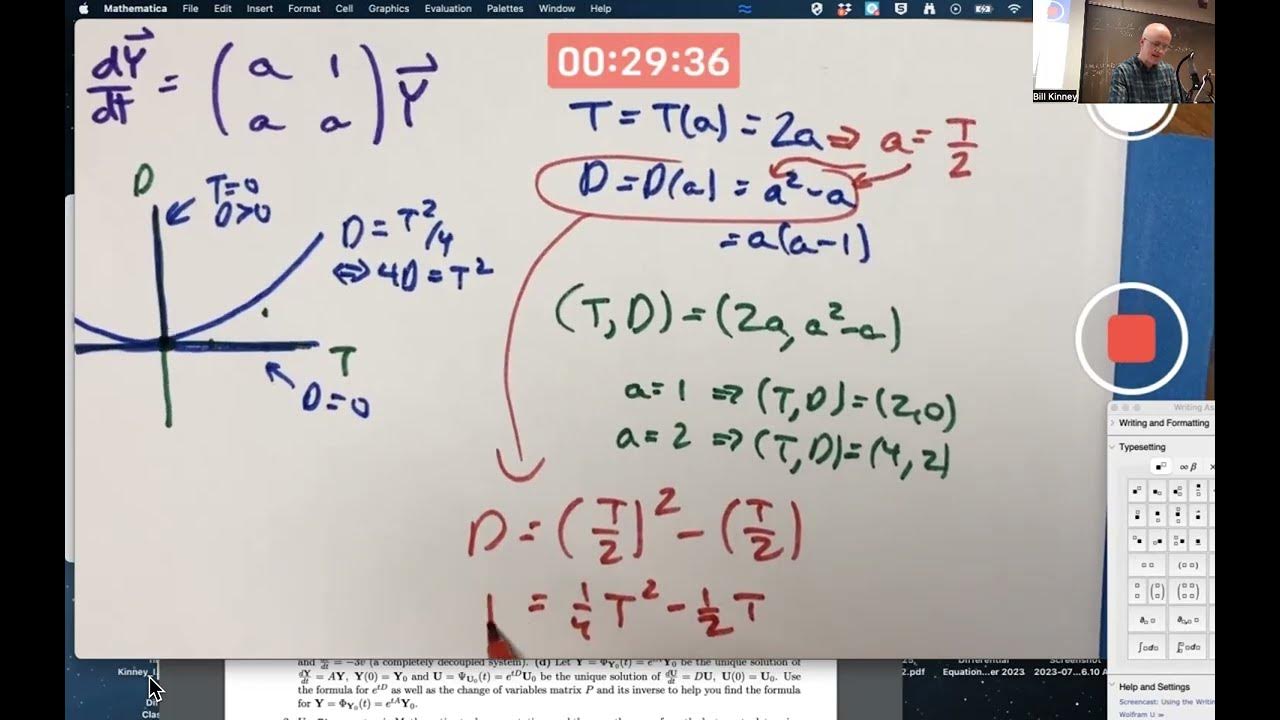 Mathematica File Edit Insert Format Cell Graphics Evaluation Palettes Window Help
00:29:36
Bill Kinney
dY⃗/dt = (a 1; a a) Y⃗
T = T(a) = 2a ⇒ a = T/2
D = D(a) = a² - a
= a(a-1)
D
T=0
D>0
D = T²/4
⇔ 4D = T²
T
D=0
(T, D) = (2a, a²-a)
a=1 ⇒ (T, D) = (2, 0)
a=2 ⇒ (T, D) = (4, 2)
D = (T/2)² - (T/2)
= 1/4 T² - 1/2 T
Writing As
Writing and Formatting
Typesetting
∞ β
Help and Settings
Screencast: Using the Writing
Wolfram U »
Kinney_
Dif
Clas
= −3v (a completely decoupled system). (d) Let Y = Φ_Y₀(t) = Y₀ be the unique solution of
dY/dt = AY, Y(0) = Y₀ and U = Ψ_U₀(t) = e^{tD}U₀ be the unique solution of dU/dt = DU, U(0) = U₀. Use
the formula for e^{tD} as well as the change of variables matrix P and its inverse to help you find the formula
for Y = Φ_Y₀(t) = e^{tA}Y₀.
2.pdf
Differential
Equation...er 2023
Screenshot
2023-07...6.10 A